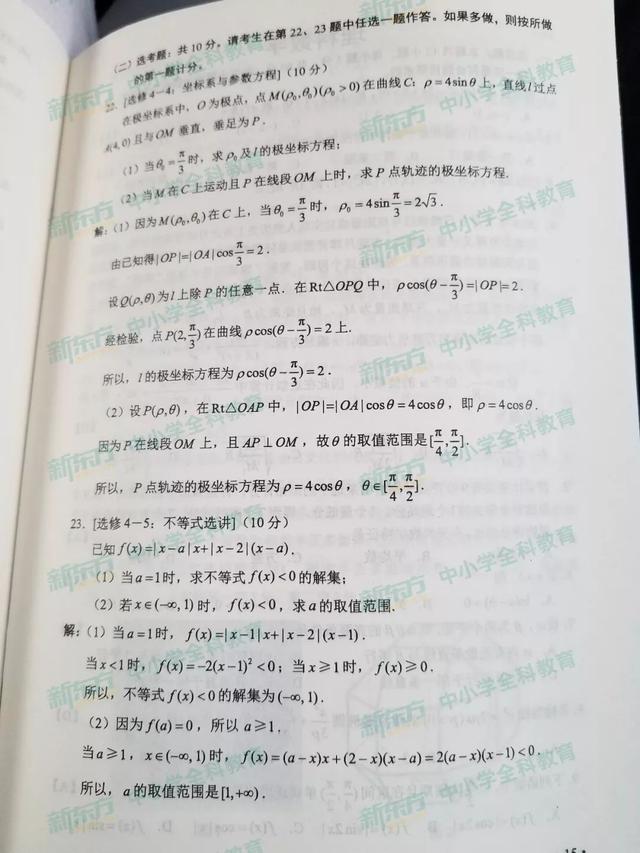 (二) 选考题：共10分。请考生在第22、23题中任选一题作答。如果多做，则按所做
的第一题计分。
22. [选修4-4：坐标系与参数方程]（10分）
在极坐标系中，O为极点，点M(ρ₀,θ₀)(ρ₀>0)在曲线C：ρ=4sinθ上，直线l过点
A(4,0)且与OM垂直，垂足为P.
(1) 当θ₀=π/3时，求ρ₀及l的极坐标方程；
(2) 当M在C上运动且P在线段OM上时，求P点轨迹的极坐标方程.
解：(1) 因为M(ρ₀,θ₀)在C上，当θ₀=π/3时，ρ₀=4sinπ/3=2√3.
由已知得|OP|=|OA|cosπ/3=2.
设Q(ρ,θ)为l上除P的任意一点. 在Rt△OPQ中，ρcos(θ-π/3)=|OP|=2.
经检验，点P(2,π/3)在曲线ρcos(θ-π/3)=2上.
所以，l的极坐标方程为ρcos(θ-π/3)=2.
(2) 设P(ρ,θ)，在Rt△OAP中，|OP|=|OA|cosθ=4cosθ，即ρ=4cosθ.
因为P在线段OM上，且AP⊥OM，故θ的取值范围是[π/4,π/2].
所以，P点轨迹的极坐标方程为ρ=4cosθ，θ∈[π/4,π/2].
23. [选修4-5：不等式选讲]（10分）
已知f(x)=|x-a|x+|x-2|(x-a).
(1) 当a=1时，求不等式f(x)<0的解集；
(2) 若x∈(-∞,1)时，f(x)<0，求a的取值范围.
解：(1) 当a=1时，f(x)=|x-1|x+|x-2|(x-1).
当x<1时，f(x)=-2(x-1)²<0；当x≥1时，f(x)≥0.
所以，不等式f(x)<0的解集为(-∞,1).
(2) 因为f(a)=0，所以a≥1.
当a≥1，x∈(-∞,1)时，f(x)=(a-x)x+(2-x)(x-a)=2(a-x)(x-1)<0.
所以，a的取值范围是[1,+∞).
新东方 中小学全科教育